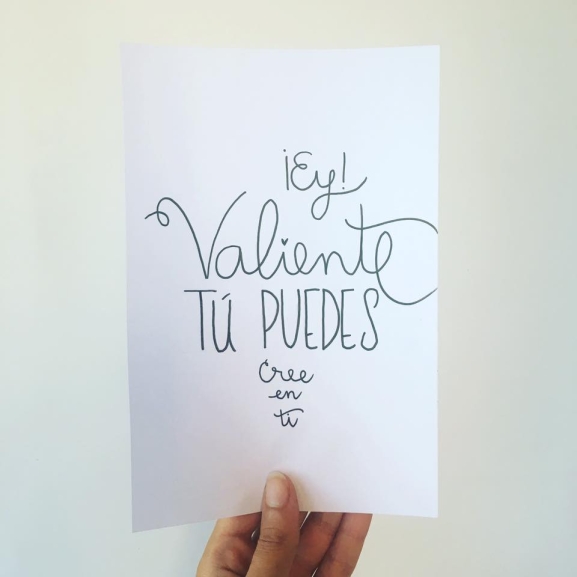 ¡Ey!
Valiente
TÚ PUEDES
Cree
en
ti